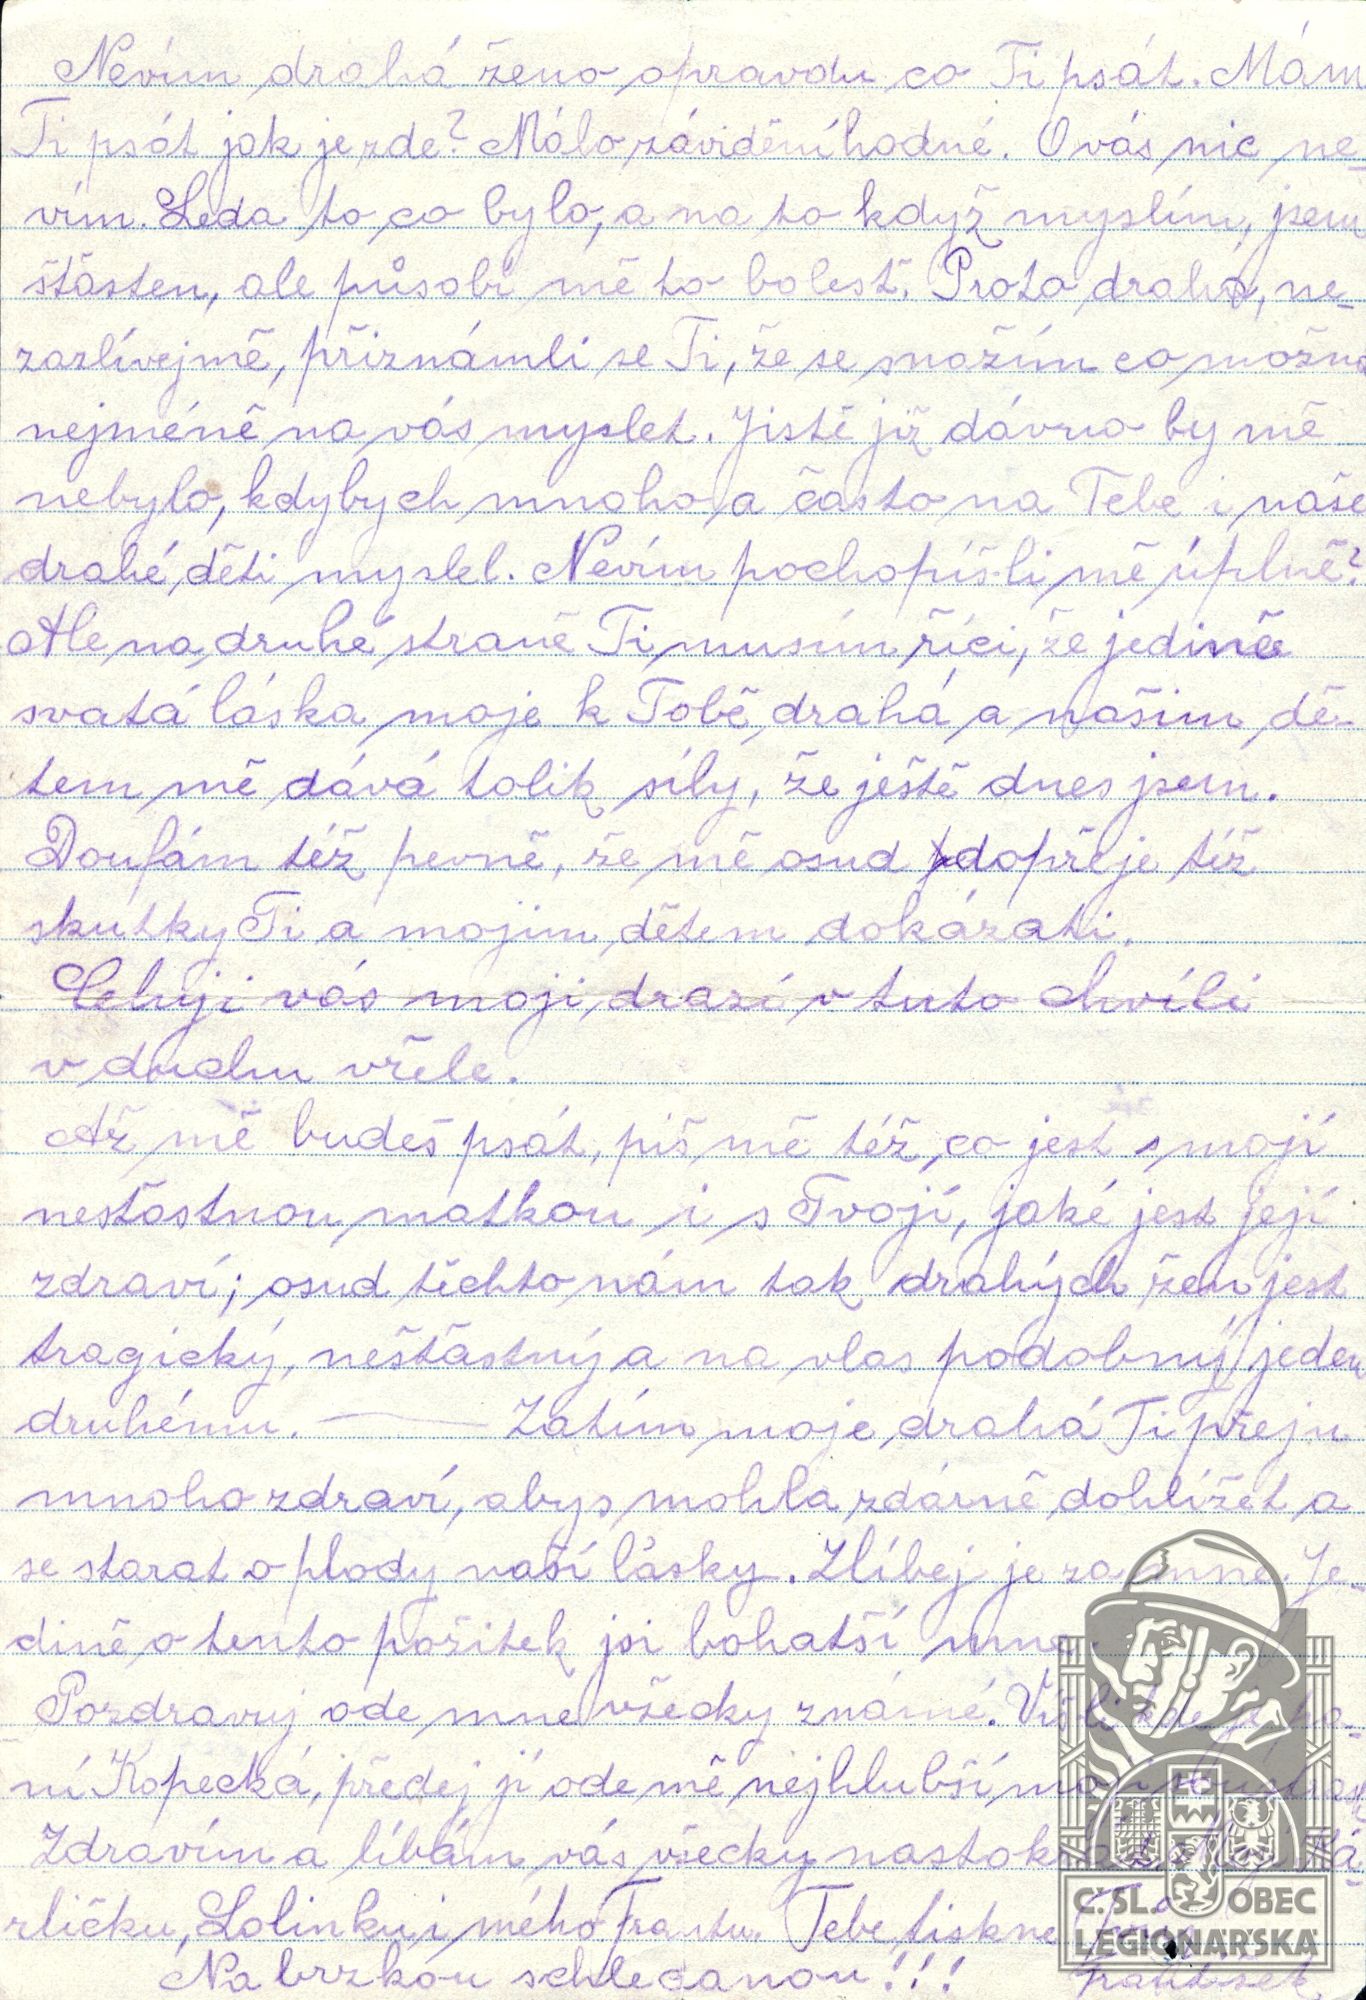 Nevím drahá ženo opravdu co Ti psát. Mám
Ti psát jak je zde? Málo záviděníhodné. O vás nic ne-
vím. Leda to co bylo, a na to když myslím, jsem
šťasten, ale působí mě to bolest. Proto drahá, ne-
zazlívejmě, přiznámli se Ti, že se snažím co možno
nejméně na vás myslet. Jistě již dávno by mě
nebylo, kdybych mnoho a často na Tebe i naše
drahé děti myslel. Nevím pochopíš-li mě úplně?
Ale na druhé straně Ti musím říci, že jedině
svatá láska moje k Tobě drahá a našim dě-
tem mě dává tolik síly, že ještě dnes jsem.
Doufám též pevně, že mě osud dopřeje též
skutky Ti a mojim dětem dokázati.
Celuji vás moji drazí v tuto chvíli
v duchu vřele.
Až mě budeš psát, piš mě též, co jest s mojí
nešťastnou matkou i s Tvojí, jaké jest její
zdraví; osud těchto nám tak drahých žen jest
tragický, nešťastný a na vlas podobný jeden
druhému. — Zatím moje drahá Ti přeju
mnoho zdraví, abys mohla zdárně dohlížet a
se starat o plody naší lásky. Zlíbej je za mne. Je-
dině o tento požitek jsi bohatší mne.
Pozdravuj ode mne všecky známé. Víš li kde je pa-
ní Kopecká, předej jí ode mě nejhlubší moji
Zdravím a líbám vás všecky nastokrát. Moji Ká-
rličku, Lolinku i mého Frantu. Tebe tiskne
Na brzkou schledanou!!! František
ČSL. OBEC
LEGIONÁŘSKÁ